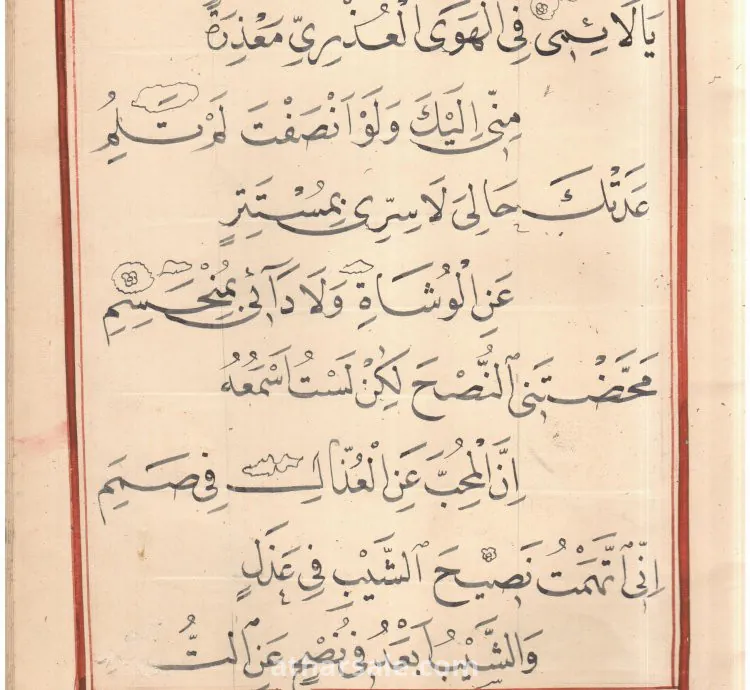 يَا لَائِمِي فِي الْهَوَى الْعُذْرِيِّ مَعْذِرَةً
مِنِّي اِلَيْكَ وَلَوْ اَنْصَفْتَ لَمْ تَلُمِ
عَدَتْكَ حَالِيَ لَا سِرِّي بِمُسْتَتِرٍ
عَنِ الْوُشَاةِ وَلَا دَآئِي بِمُنْحَسِمِ
مَحَّضْتَنِي النُّصْحَ لٰكِنْ لَسْتُ اَسْمَعُهُ
اِنَّ الْمُحِبَّ عَنِ الْعُذَّالِ فِي صَمَمِ
اِنِّي اتَّهَمْتُ نَصِيحَ الشَّيْبِ فِي عَذَلٍ
وَالشَّيْبُ اَبْعَدُ فِي نُصْحٍ عَنِ التُّ
atharsale.com